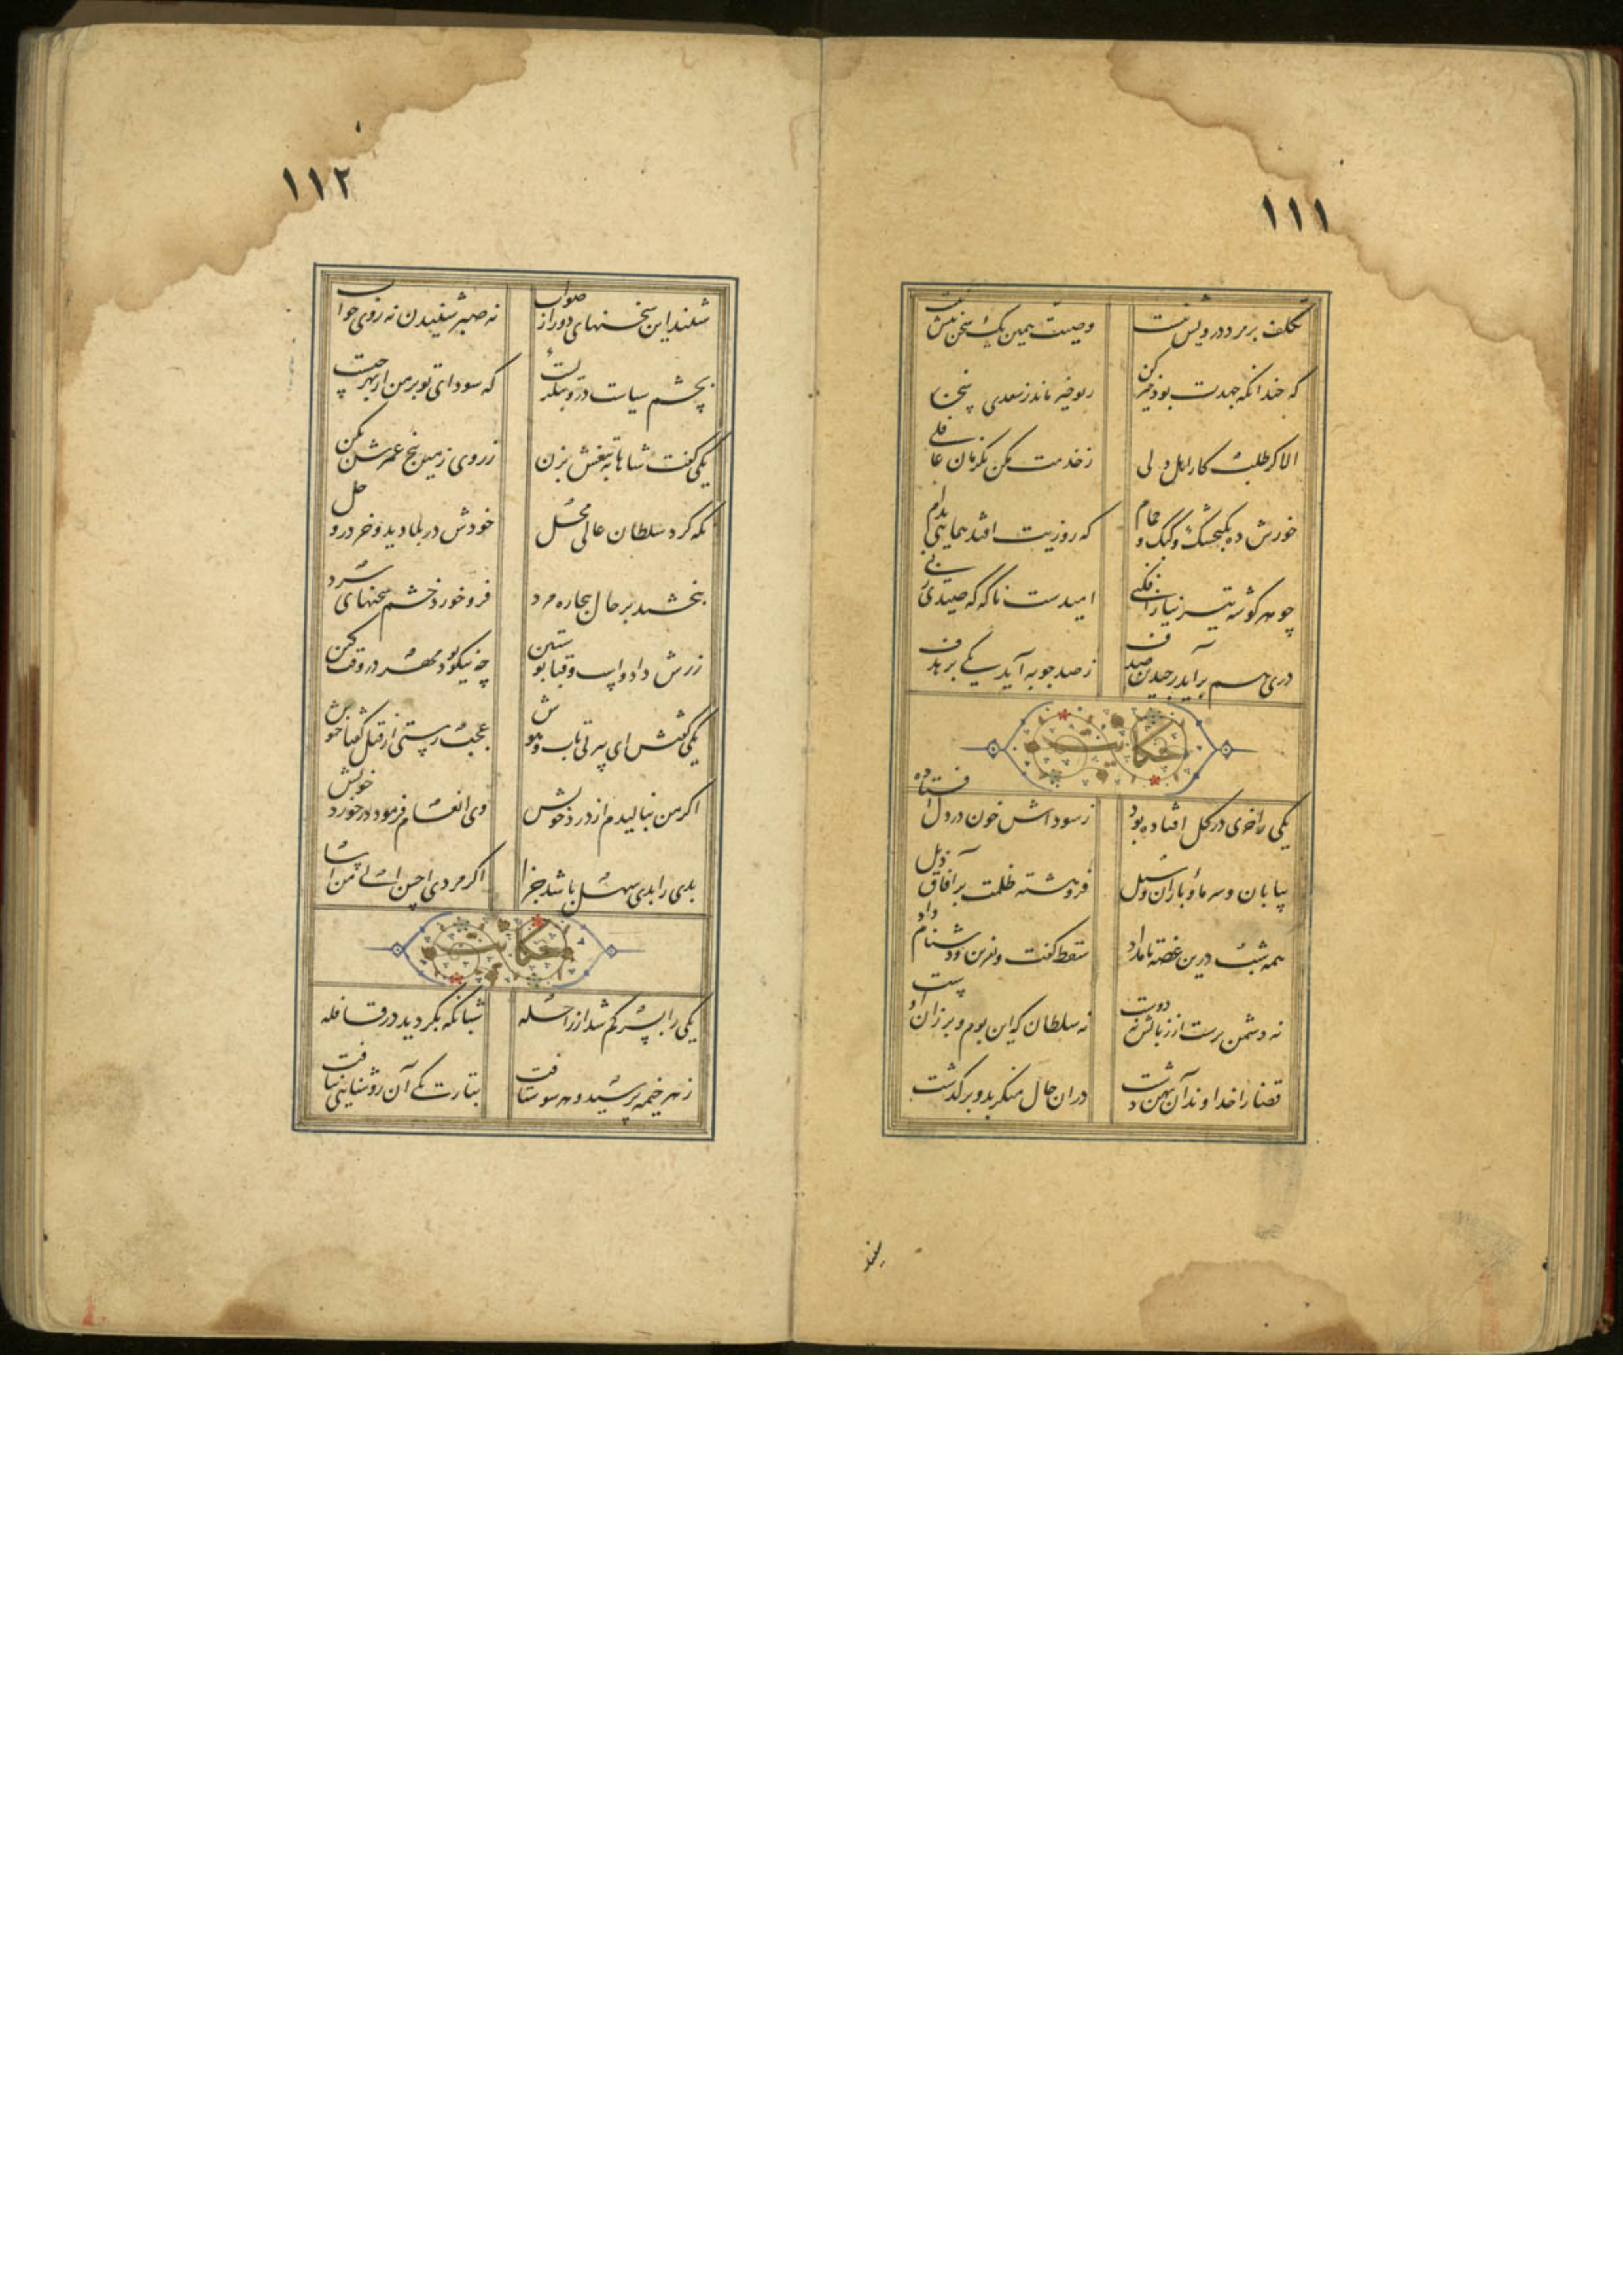 ۱۱۱
تکلف بر مرد درویش نیست وصیت همین یک سخن بیش نیست
که چندانکه جهدت بود خیر کن ز تو خیر ماند ز سعدی سخن
الا گر طلبکار اهل دلی ز خدمت مکن یک زمان غافلی
خورش ده بکنجشک و کبک و حمام که روزیت افتد همایی بدام
چو هر گوشه تیر نیاز افکنی امیدست ناگه که صیدی زنی
دری هم برآید ز چندین صدف ز صد چوبه آید یکی بر هدف
حکایت
یکی را خری در گل افتاده بود ز سوداش خون در دل افتاده
بیابان و سرما و باران و سیل فروهشته ظلمت بر آفاق ذیل
همه شب درین غصه تا بامداد سقط گفت و نفرین و دشنام داد
نه دشمن برست از زبانش نه دوست نه سلطان که این بوم و بر زان اوست
قضا را خداوند آن پهن دشت در آن حال منکر بدو برگذشت
۱۱۲
شنید این سخنهای دور از صواب نه صبر شنیدن نه روی جواب
بچشم سیاست درو بنگریست که سودای تو بر من از بهر چیست
یکی گفت شاها به تیغش بزن ز روی زمین بیخ عمرش بکن
نگه کرد سلطان عالی محل خودش در بلا دید و خر در وحل
ببخشید بر حال بیچاره مرد فرو خورد خشم سخنهای سرد
زرش داد و اسپ و قبا پوستین چه نیکو بود مهر در وقت کین
یکی گفتش ای پیر بی تاب و هوش عجب رستی از قتل گفتا خموش
اگر من بنالیدم از درد خویش وی انعام فرمود در خورد خویش
بدی را بدی سهل باشد جزا اگر مردی احسن الی من اسا
حکایت
یکی را پسر گم شد از راحله شبانگه بگردید در قافله
ز هر خیمه پرسید و هر سو شتافت بتاریکی آن روشنایی نیافت